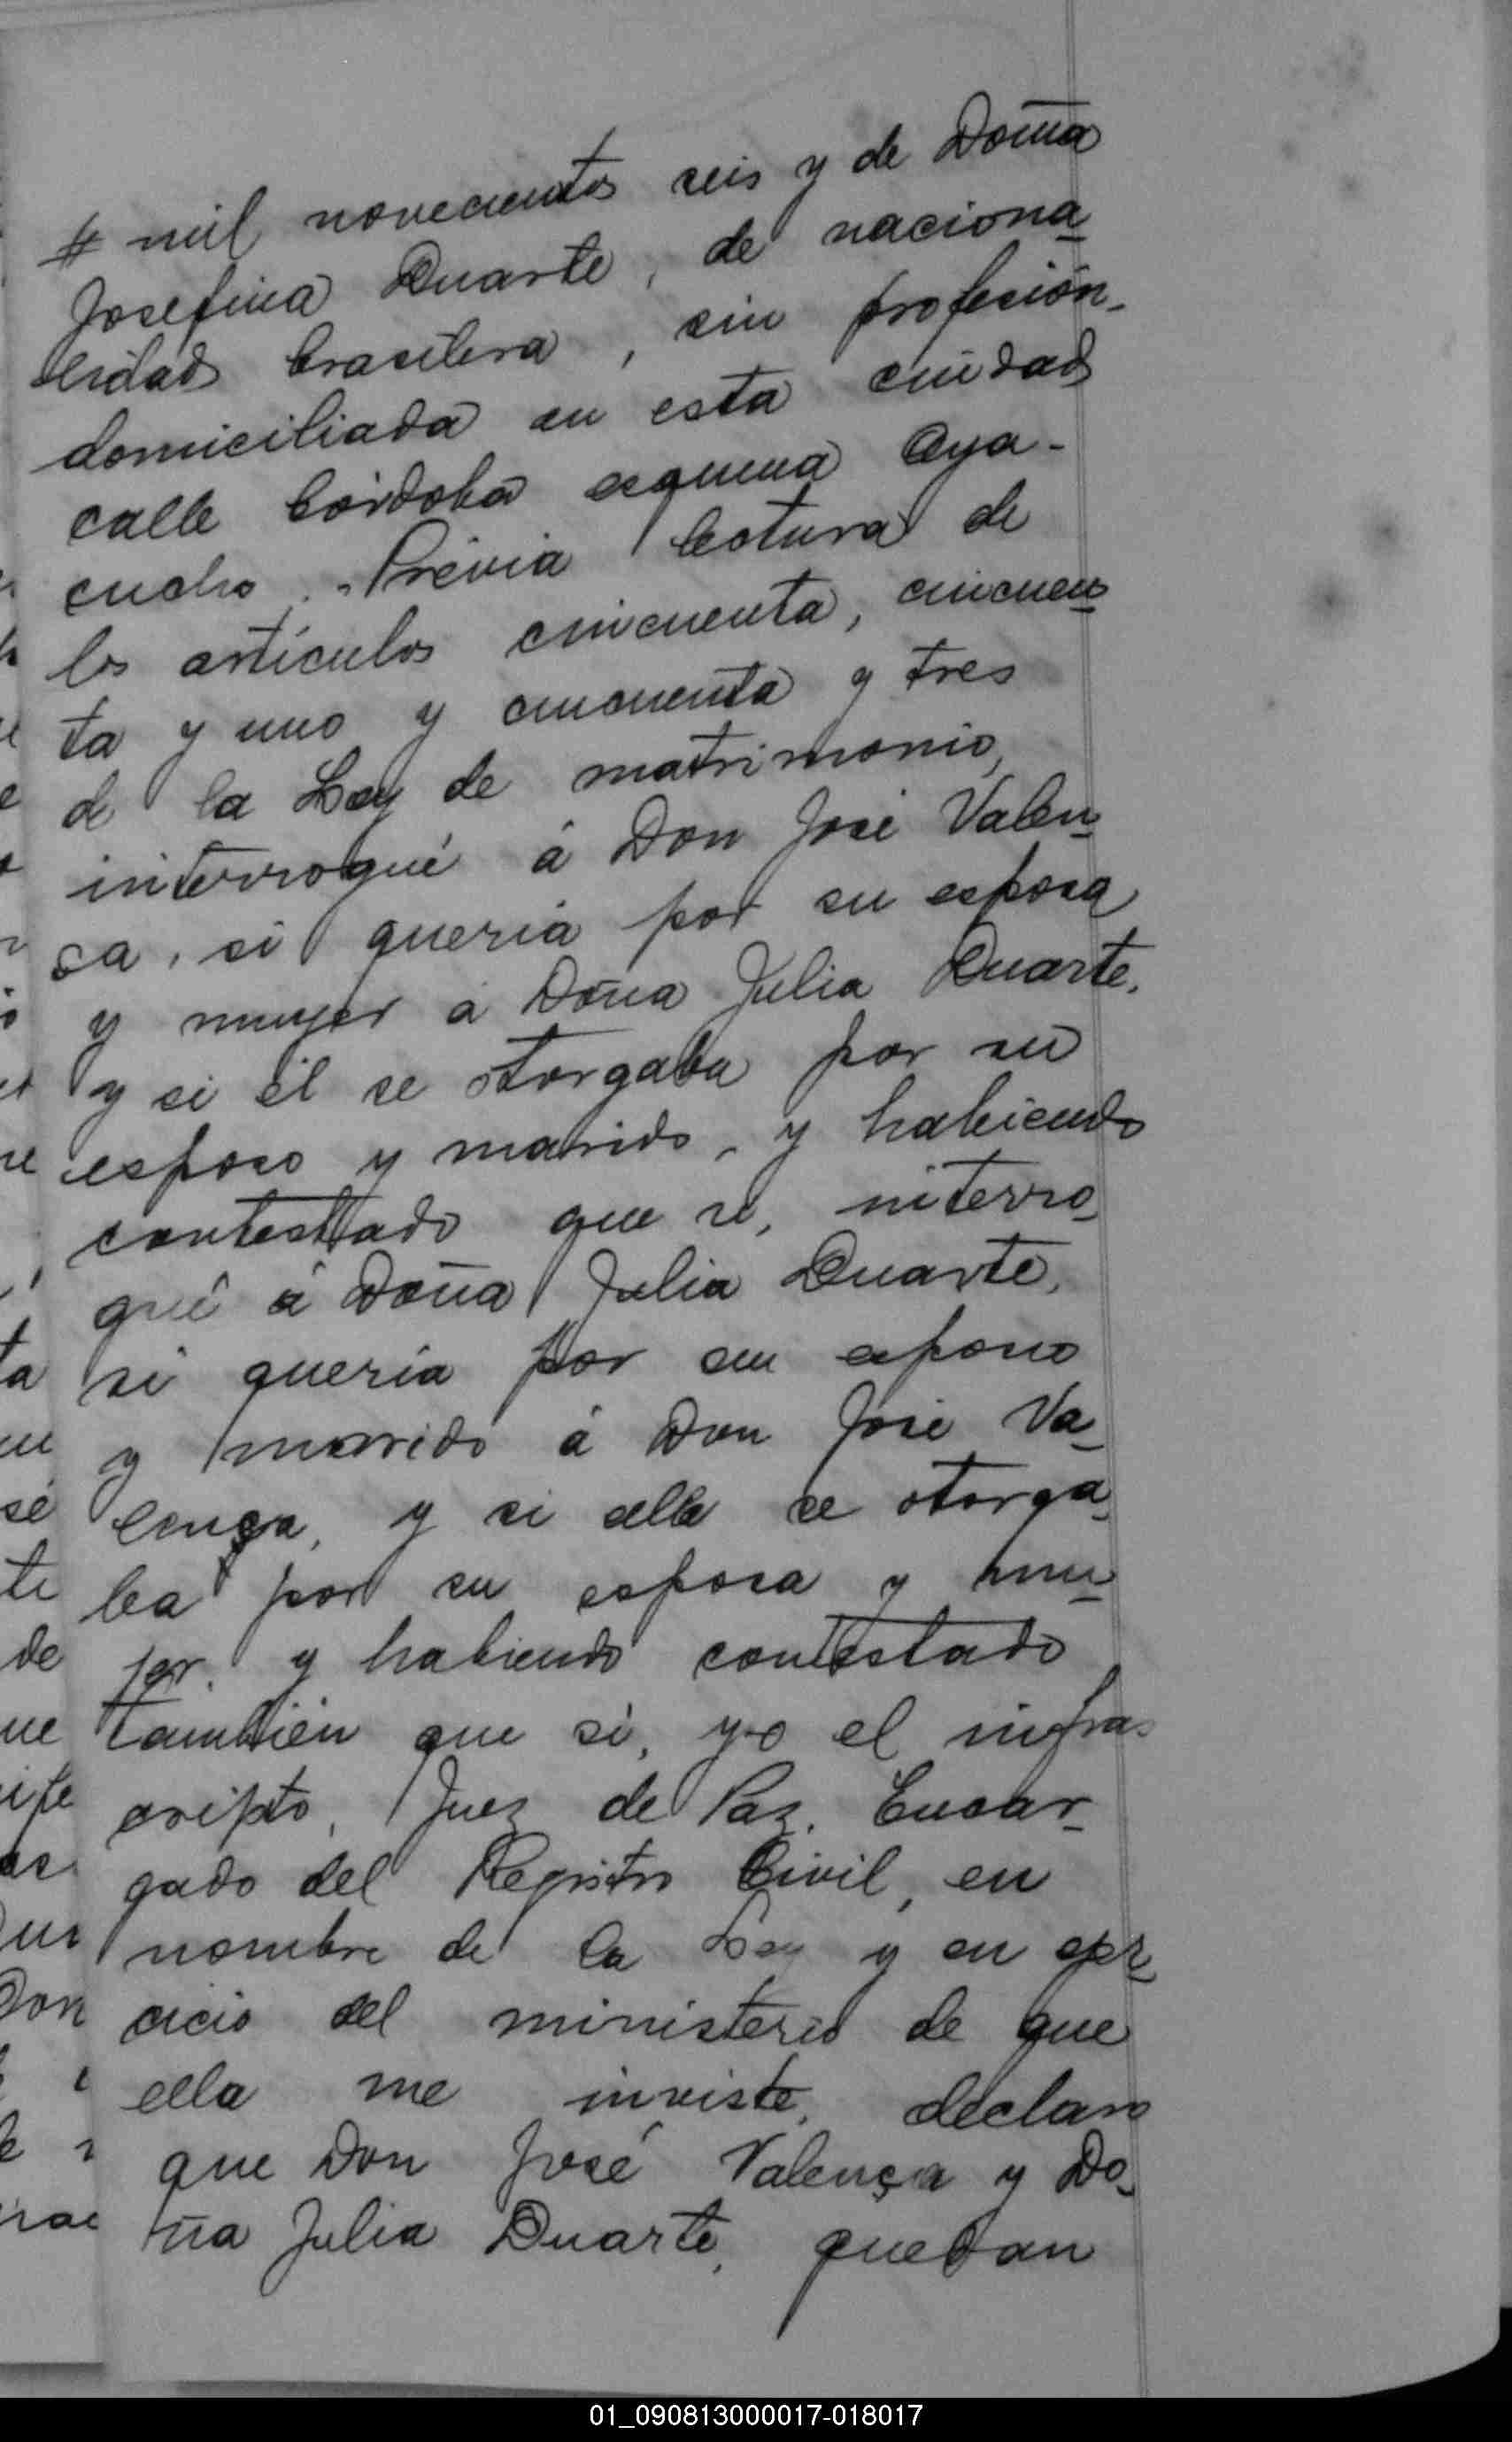 # mil novecientos seis y de Doña
Josefina Duarte, de naciona
lidad brasilera, sin profesión.
domiciliada en esta ciudad
calle Córdoba esquina Aya-
cucho. - Previa lectura de
los artículos cincuenta, cincuen
ta y uno y cincuenta y tres
de la Ley de matrimonio,
interrogué á Don José Valen
ça, si quería por su esposa
y mujer á Doña Julia Duarte,
y si él se otorgaba por su
esposo y marido, y habiendo
contestado que si, interro
gué á Doña Julia Duarte,
si quería por su esposo
y marido á Don José Va
lença, y si ella se otorga
ba por su esposa y mu
jer. y habiendo contestado
también que si, yo el infras
cripto, Juez de Paz, Encar
gado del Registro Civil, en
nombre de la Ley y en ejer
cicio del ministerio de que
ella me inviste, declaro
que Don José Valença y Do
ña Julia Duarte, quedan
01_090813000017-018017